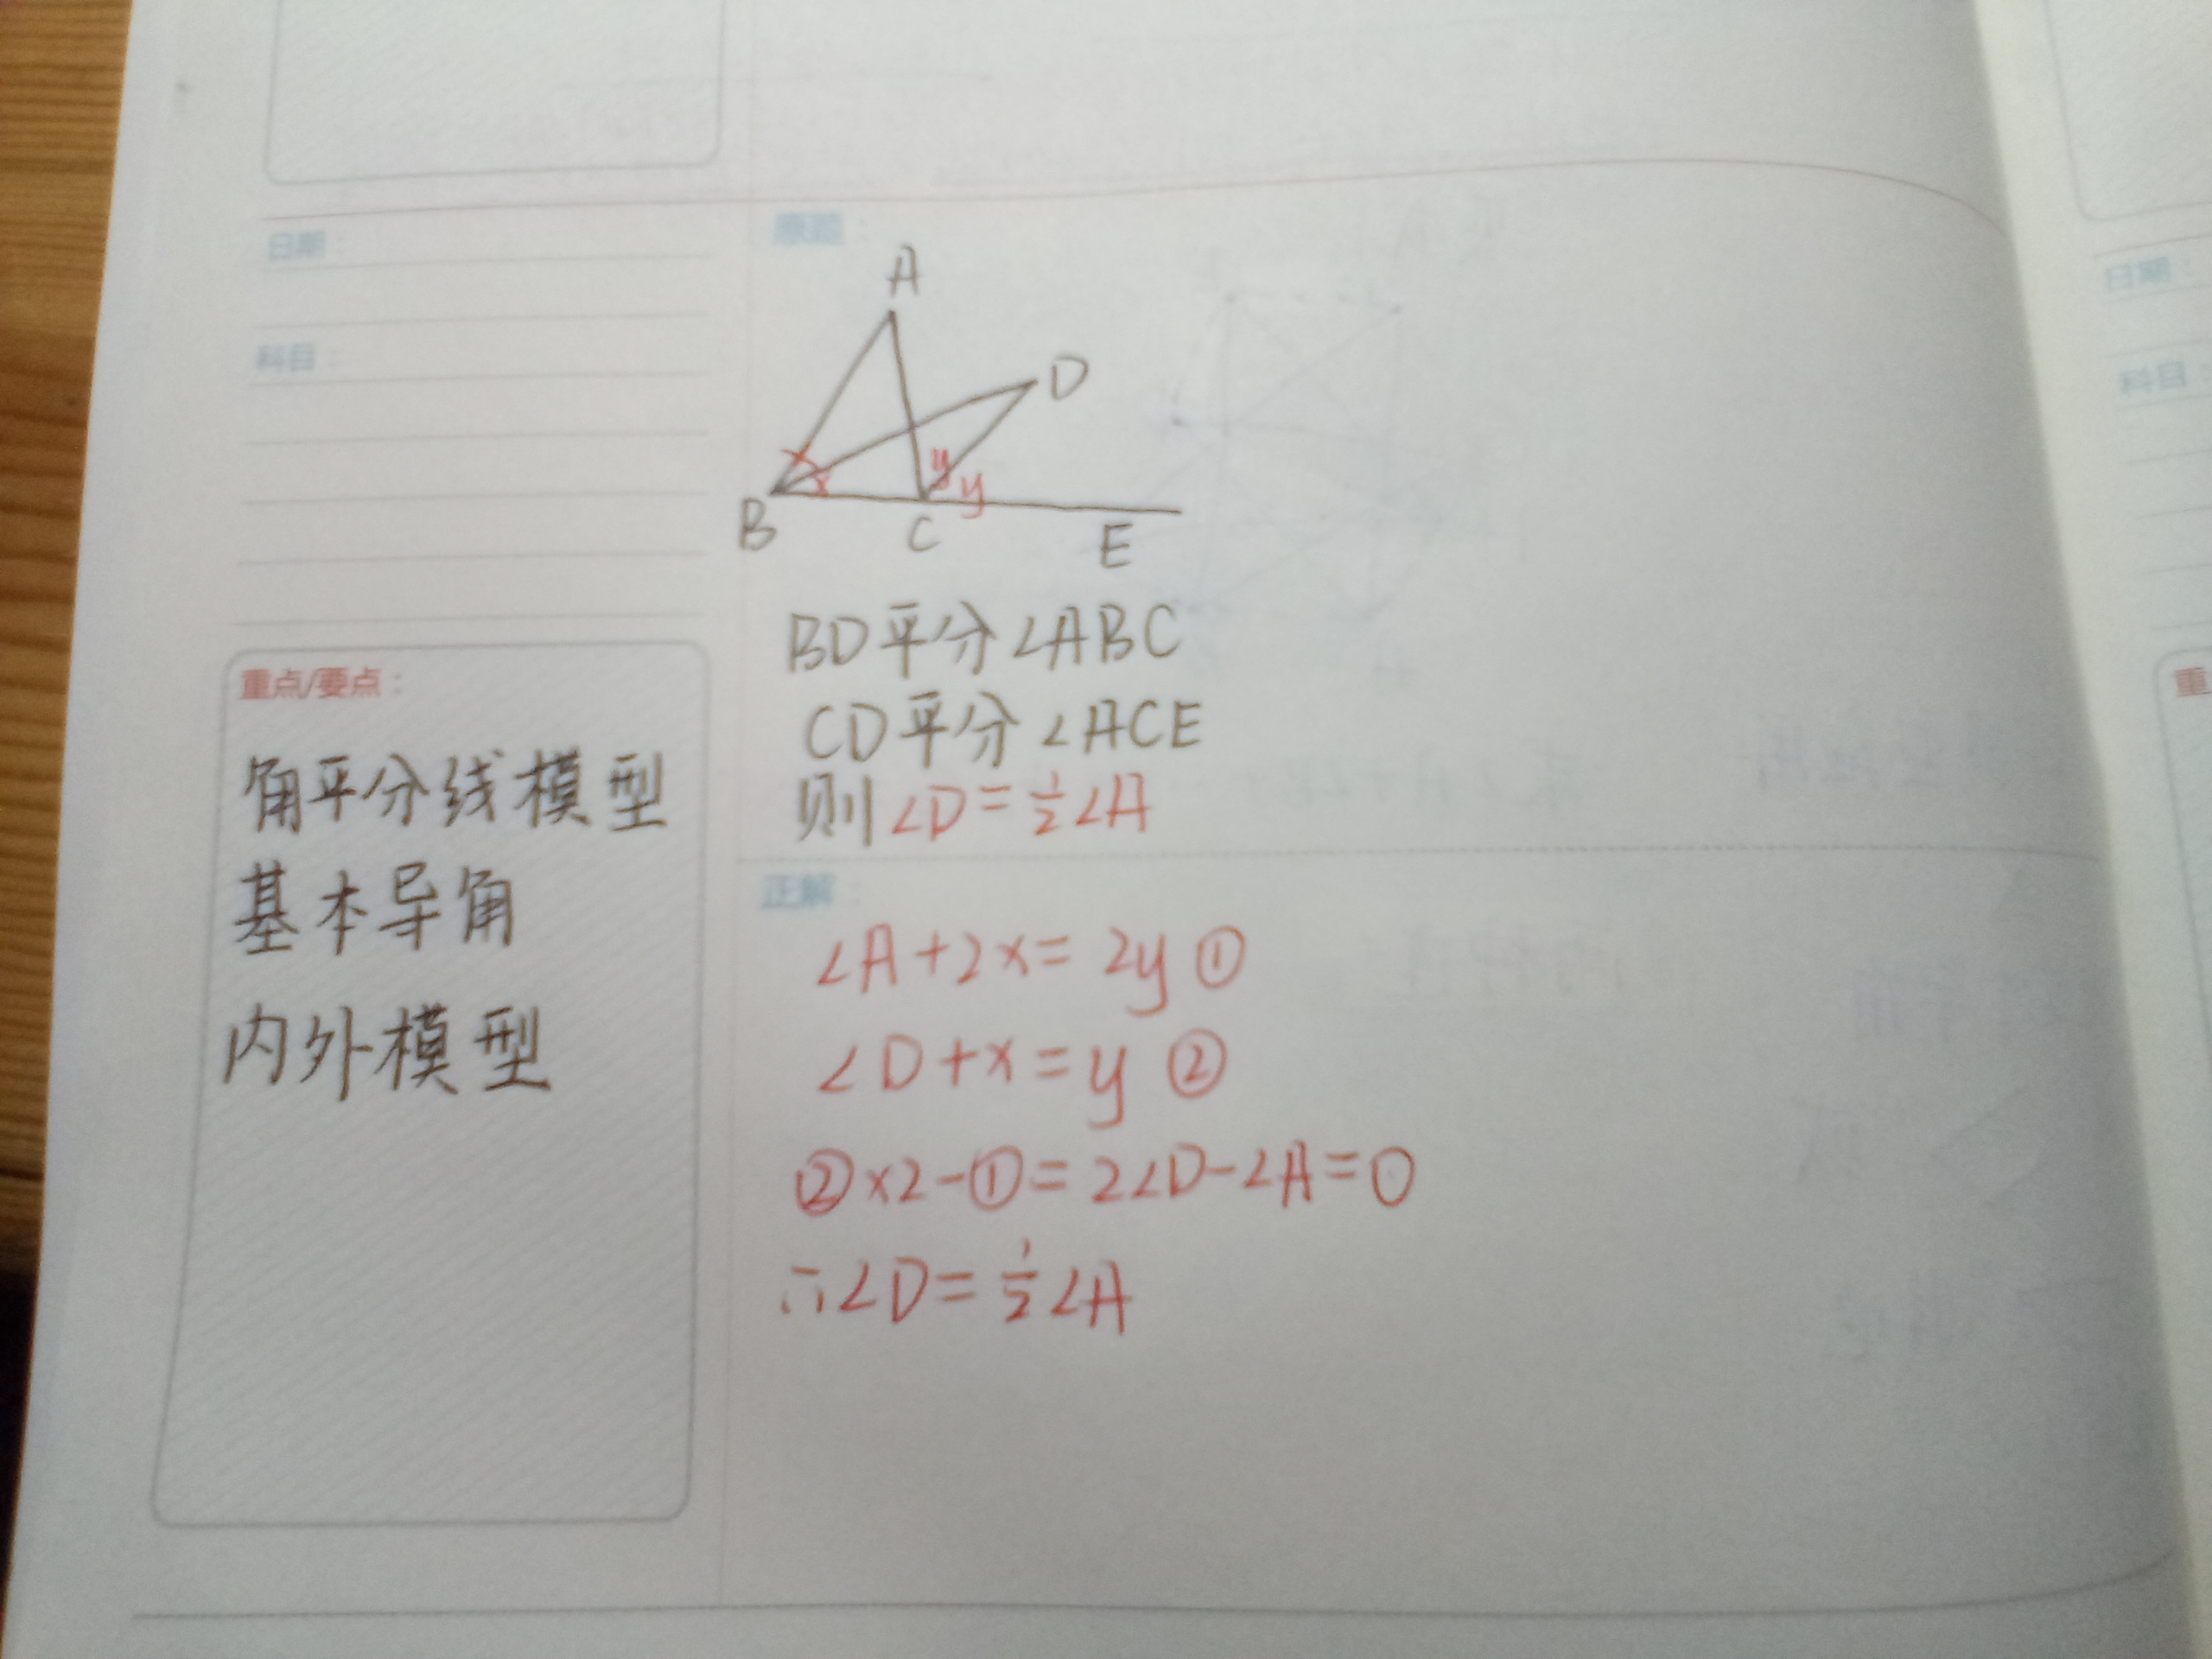 日期：
科目：
重点/要点：
角平分线模型
基本导角
内外模型
原题：
A
D
x
x
y
y
B
C
E
BD平分∠ABC
CD平分∠ACE
则∠D=½∠A
正解：
∠A+2x=2y①
∠D+x=y②
②×2-①=2∠D-∠A=0
∴∠D=½∠A
日期：
科目：
重